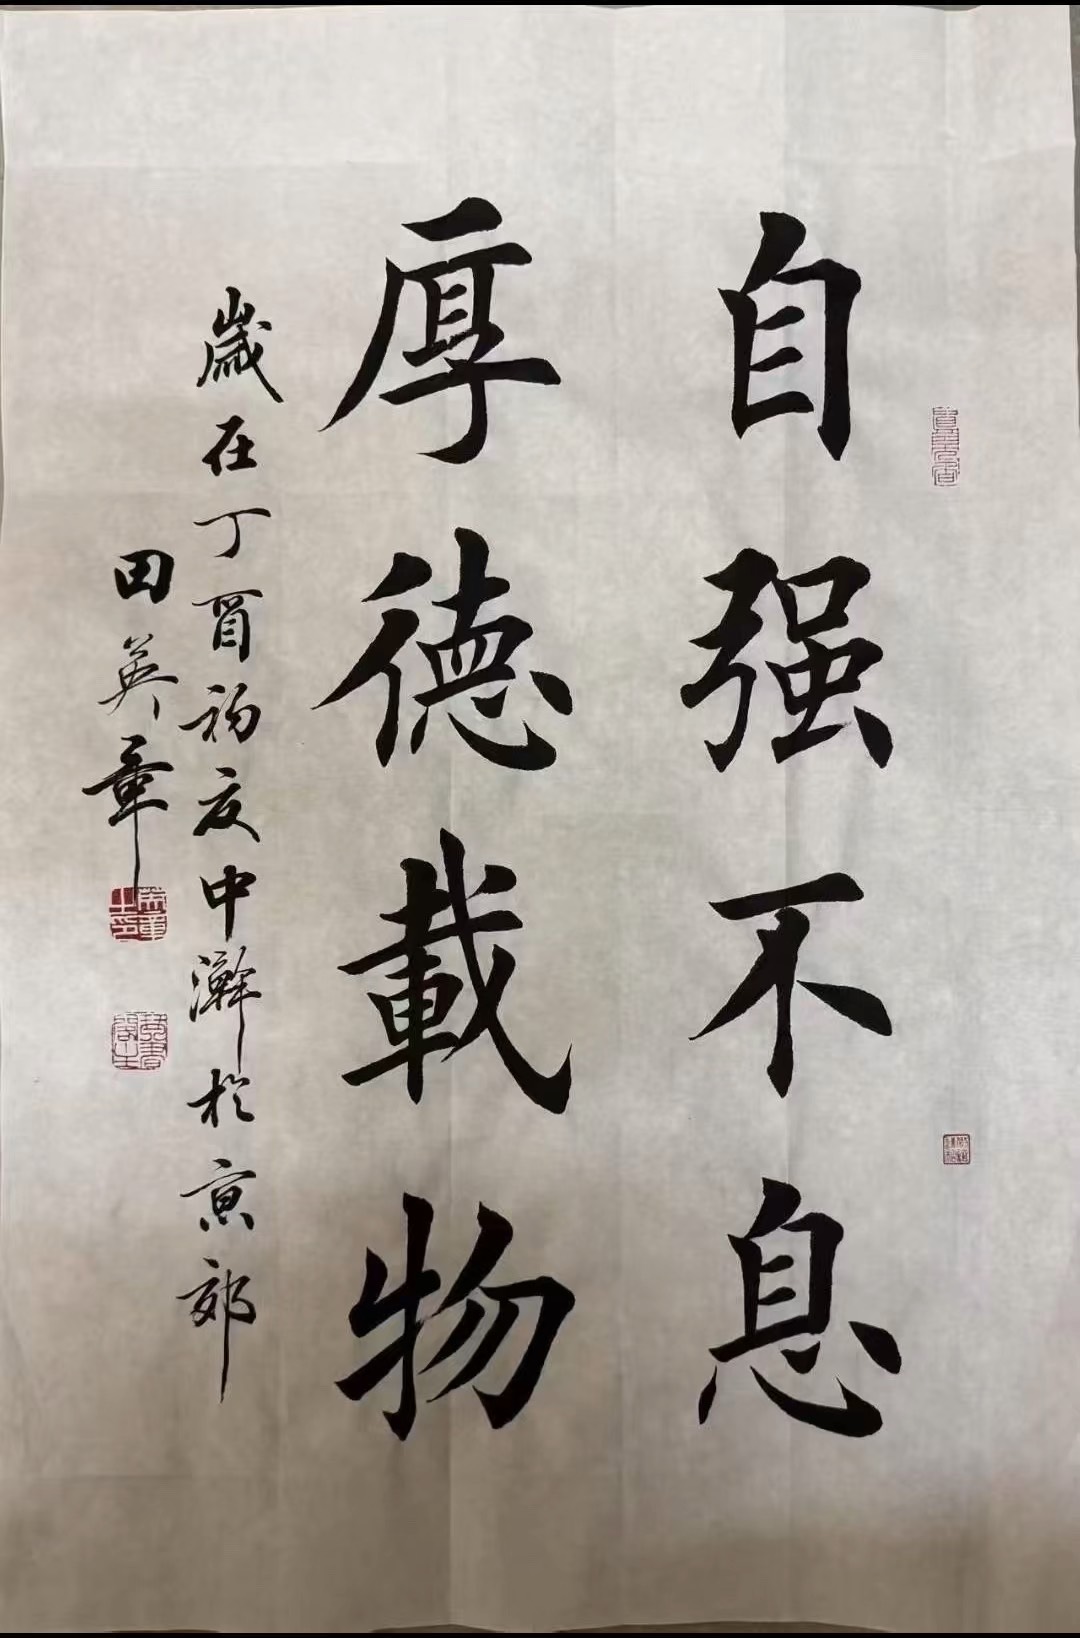 自强不息
厚德載物
歲在丁酉初夏中澣於京郊
田英章